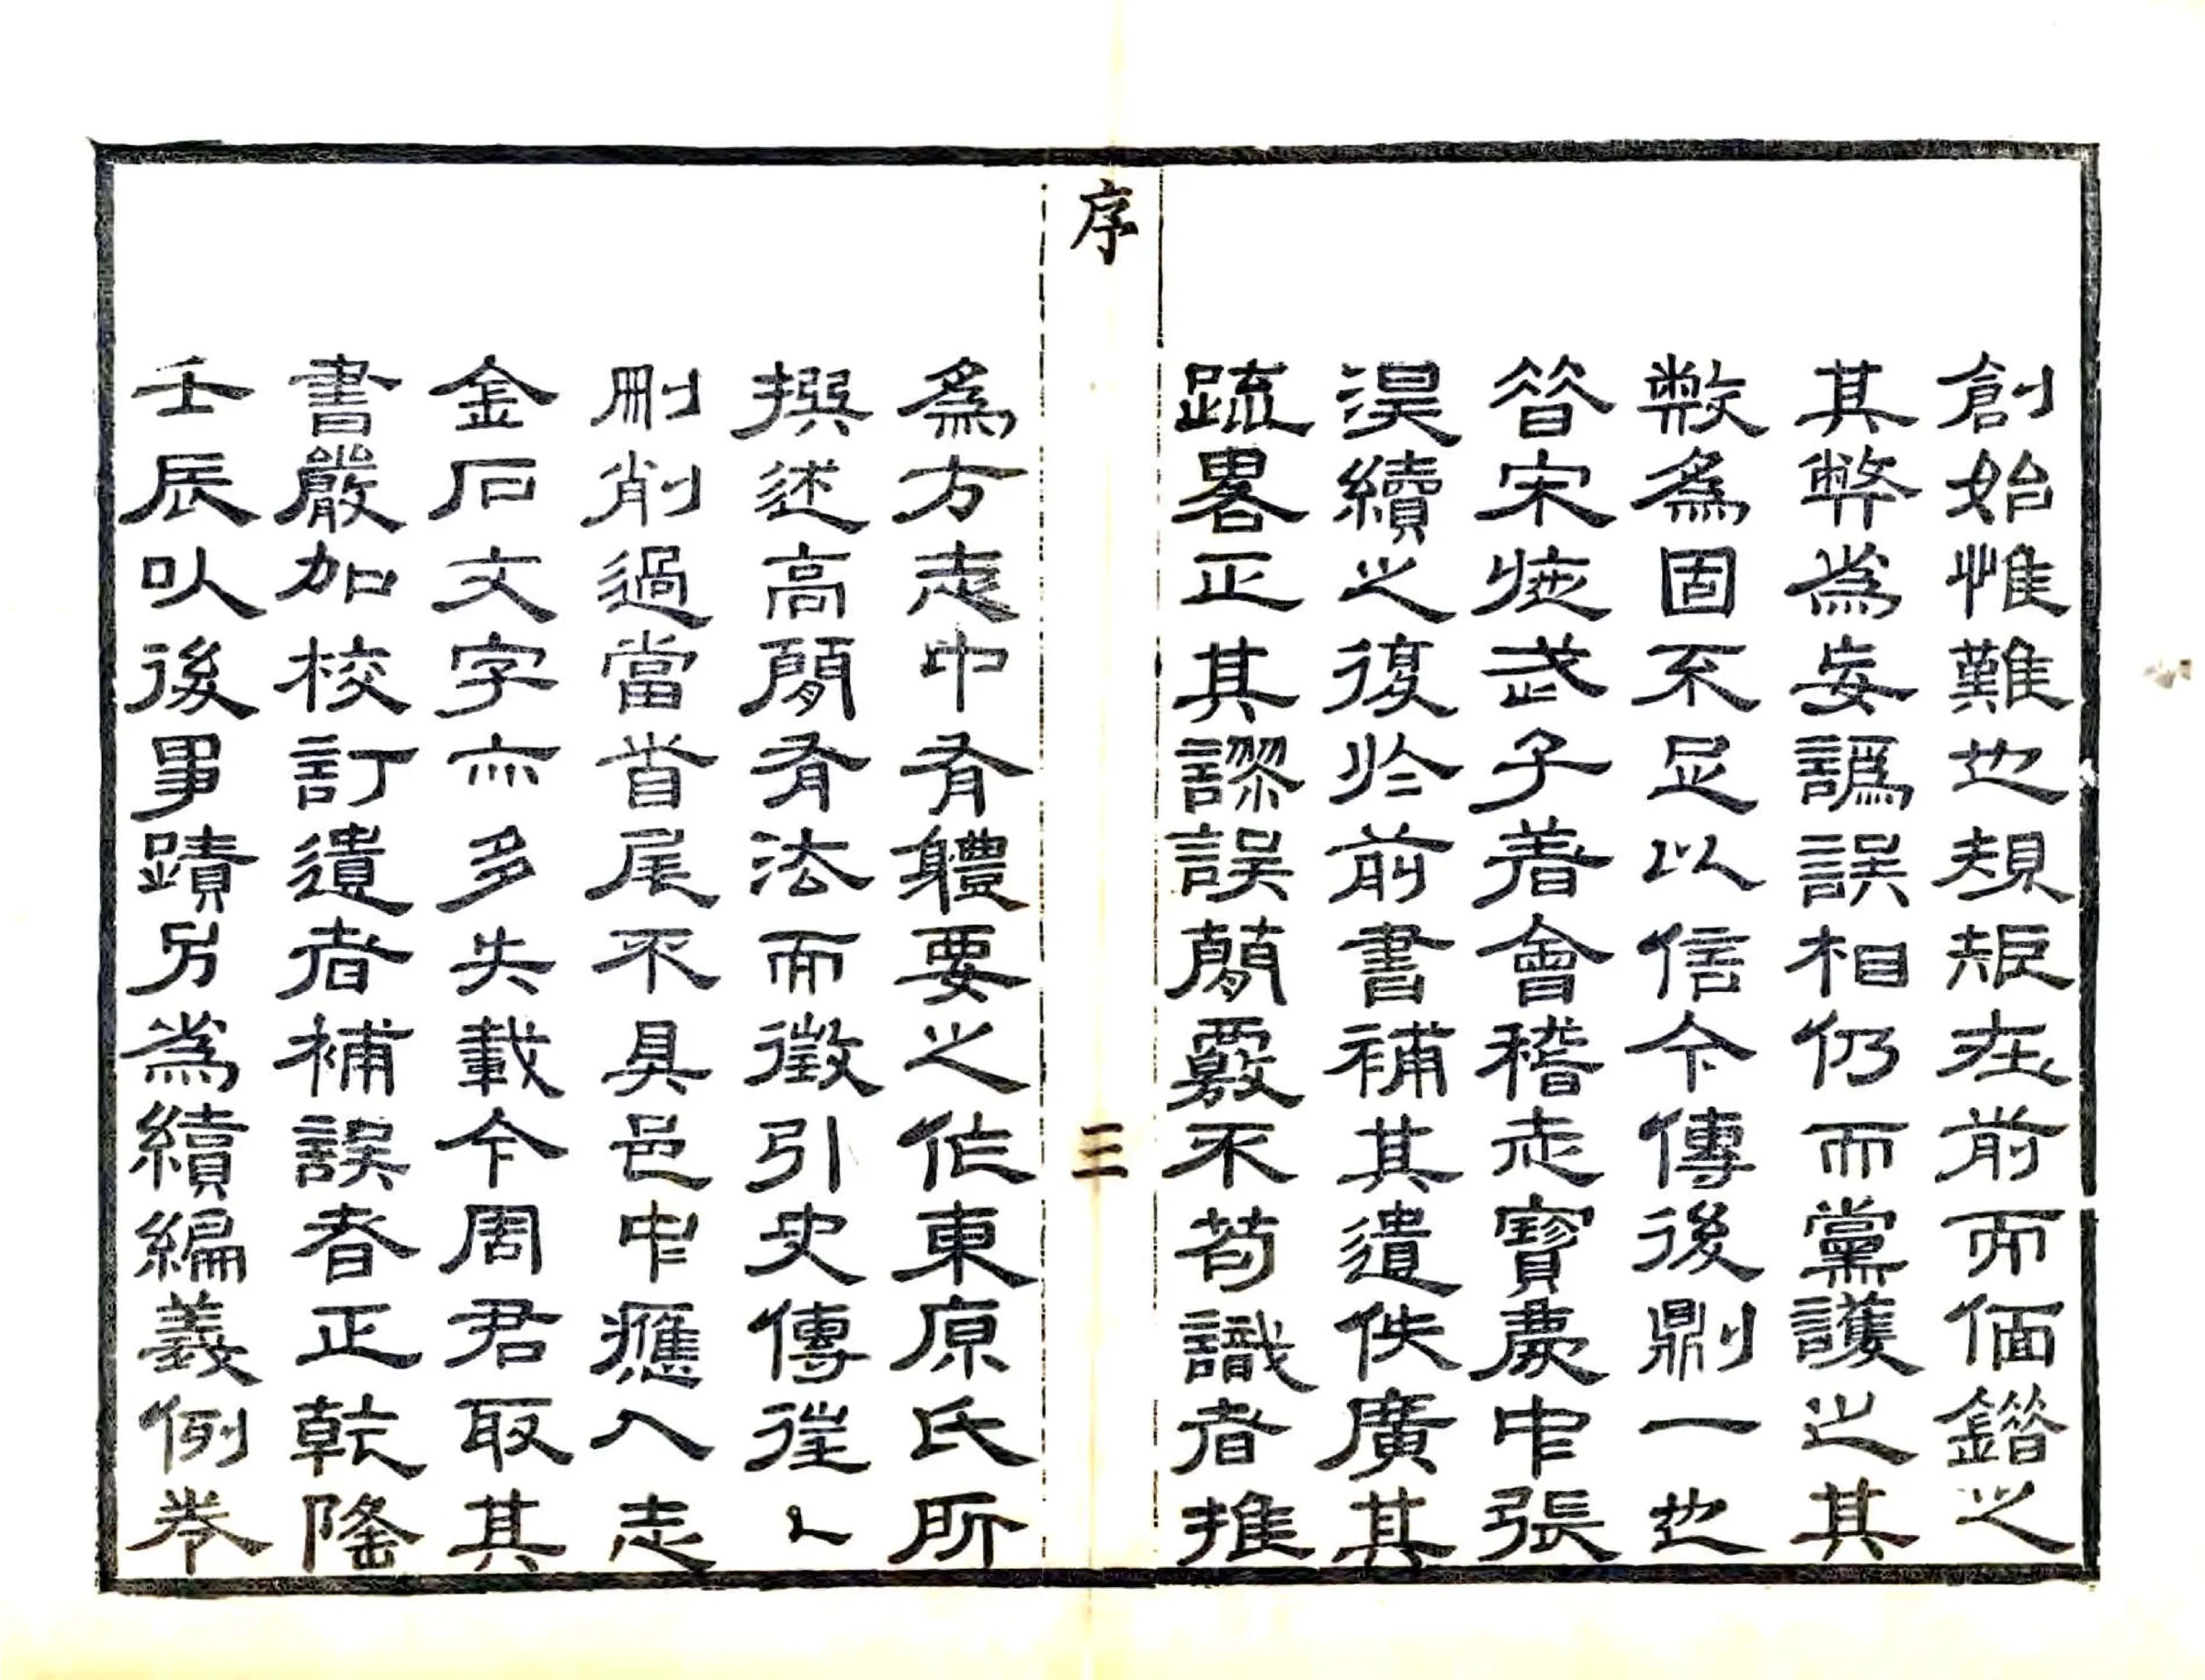 創始惟難也規矩在前而偭錯之
其弊爲妄譌誤相仍而黨護之其
敝爲固不足以信今傳後則一也
昔宋施武子著會稽志寶慶中張
淏續之復於前書補其遺佚廣其
疏畧正其謬誤簡覈不苟識者推
序
三
爲方志中有體要之作東原氏所
撰述高簡有法而徵引史傳往〻
刪削過當首尾不具邑中應入志
金石文字亦多失載今周君取其
書嚴加校訂遺者補誤者正乾隆
壬辰以後事蹟另爲續編義例卷